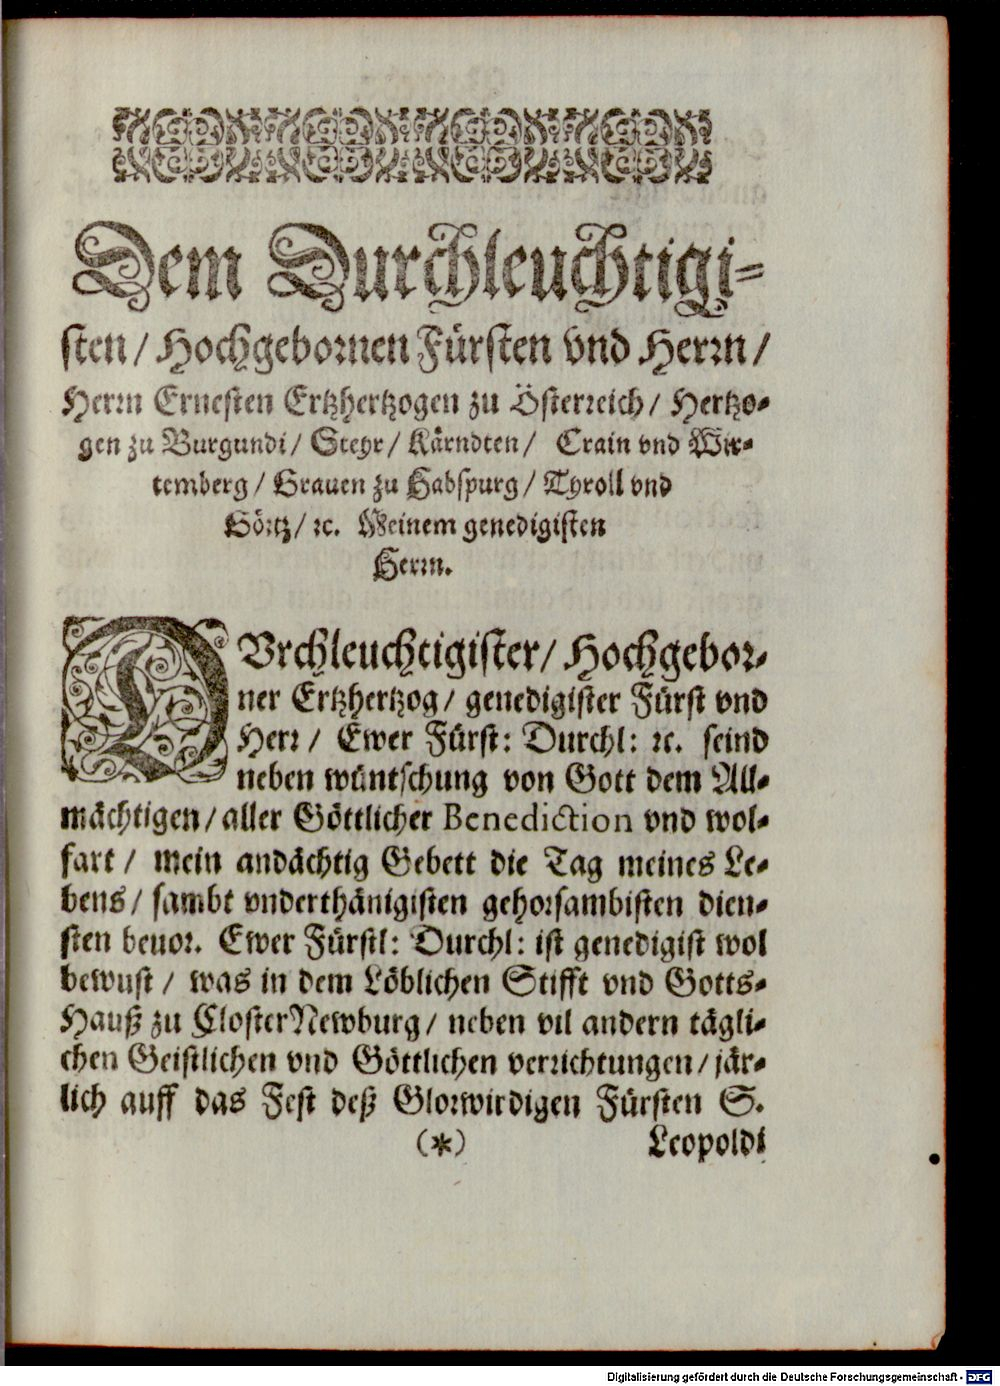 Dem Durchleuchtigi-
sten/ Hochgebornen Fürsten vnd Herrn/
Herrn Ernesten Ertzhertzogen zu Österreich/ Hertzo-
gen zu Burgundi/ Steyr/ Kärndten/ Crain vnd Wir-
temberg/ Grauen zu Habspurg/ Tyroll vnd
Görtz/ ꝛc. Meinem genedigisten
Herrn.
DVrchleuchtigister/ Hochgebor-
ner Ertzhertzog/ genedigister Fürst vnd
Herr/ Ewer Fürst: Durchl: ꝛc. seind
neben wüntschung von Gott dem All-
mächtigen/ aller Göttlicher Benediction vnd wol-
fart/ mein andächtig Gebett die Tag meines Le-
bens/ sambt vnderthänigisten gehorsambisten dien-
sten beuor. Ewer Fürstl: Durchl: ist genedigist wol
bewust/ was in dem Löblichen Stifft vnd Gotts-
Hauß zu ClosterNewburg/ neben vil andern tägli-
chen Geistlichen vnd Göttlichen verrichtungen/ jär-
lich auff das Fest deß Glorwirdigen Fürsten S.
(*) Leopoldi
Digitalisierung gefördert durch die Deutsche Forschungsgemeinschaft - DFG